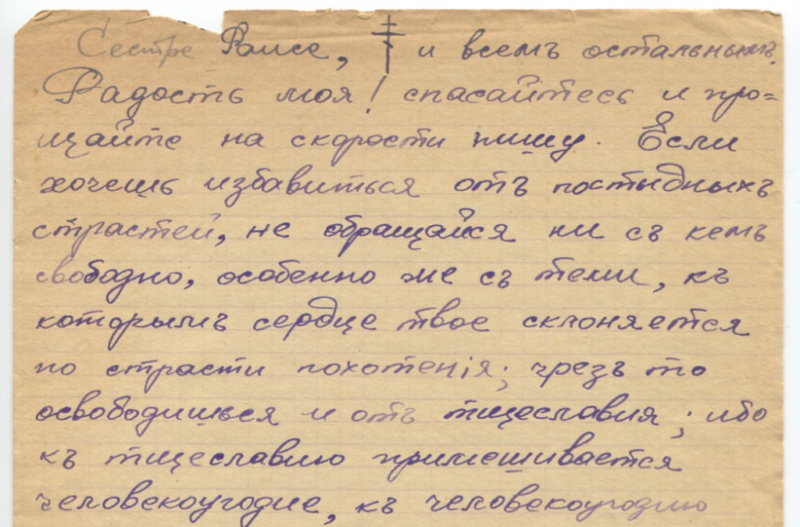 Сестре Раисе, и всемъ остальнымъ.
Радость моя! спасайтесь и про=
щайте на скорости пишу. Если
хочешь избавиться отъ постыдныхъ
страстей, не обращайся ни съ кемъ
свободно, особенно же съ теми, къ
которымъ сердце твое склоняется
по страсти похотенія; чрезъ то
освободишься и отъ тщеславия; ибо
къ тщеславию примешивается
человекоугодие, къ человекоугодию